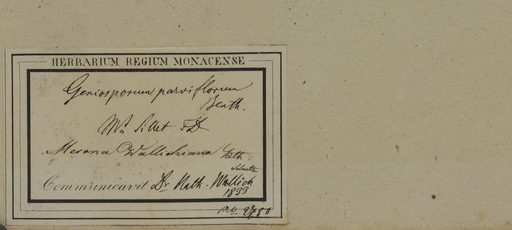 HERBARIUM REGIUM MONACENSE
Geniosporum parviflorum
Benth.
Mt. Sillet FD
Mesona Wallichiana Bth.
Communicavit Dr Nath. Wallich
1833
no 2750